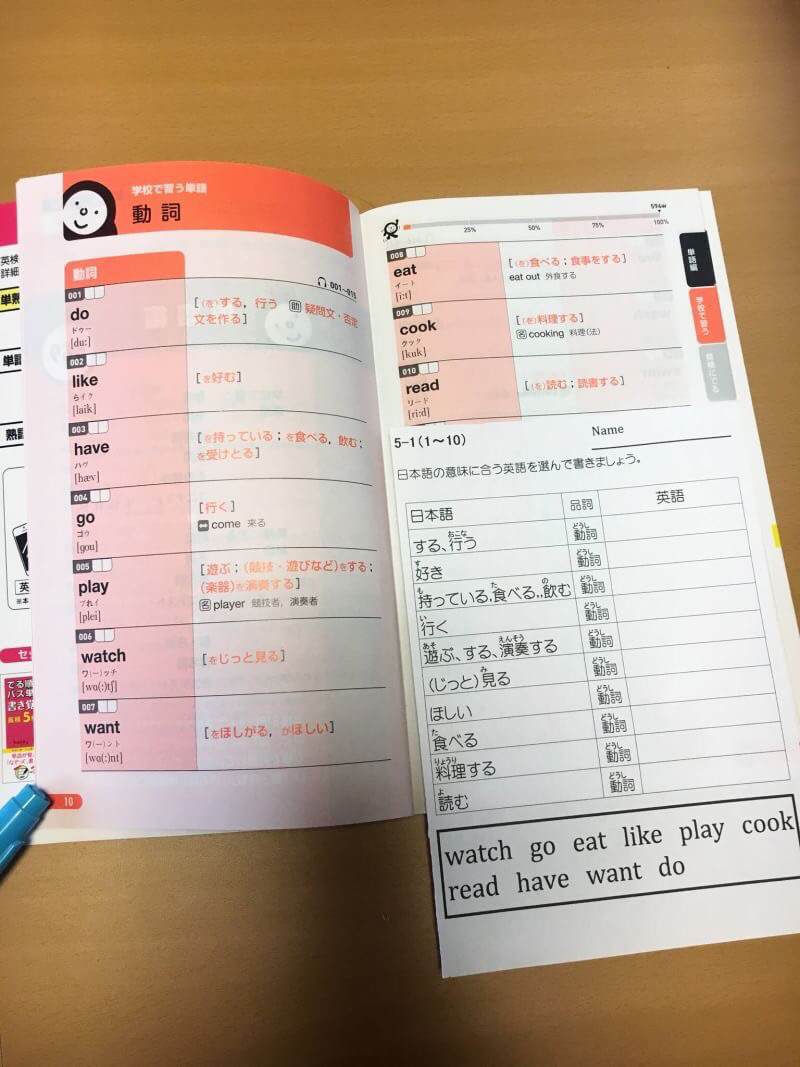 学校で習う単語
動詞
動詞
001~015
001
do
ドゥー
[du:]
[(を)する, 行う 助 疑問文・否定
文を作る]
002
like
らイク
[laik]
[を好む]
003
have
ハヴ
[hæv]
[を持っている;を食べる, 飲む;
を受けとる]
004
go
ゴウ
[gou]
[行く]
come 来る
005
play
プれイ
[plei]
[遊ぶ;(競技・遊びなど)をする;
(楽器)を演奏する]
名 player 競技者, 演奏者
006
watch
ワ(ー)ッチ
[wɑ(:)tʃ]
[をじっと見る]
007
want
ワ(ー)ント
[wɑ(:)nt]
[をほしがる, がほしい]
10
594w
25% 50% 75% 100%
008
eat
イート
[i:t]
[(を)食べる;食事をする]
eat out 外食する
009
cook
クック
[kuk]
[(を)料理する]
名 cooking 料理(法)
010
read
リード
[ri:d]
[(を)読む;読書する]
単語編
学校で習う
英検にでる
5-1(1~10)
Name
日本語の意味に合う英語を選んで書きましょう。
日本語 品詞 英語
おこな どうし
する、行う 動詞
す どうし
好き 動詞
も た の どうし
持っている、食べる、飲む 動詞
い どうし
行く 動詞
あそ えんそう どうし
遊ぶ、する、演奏する 動詞
み どうし
(じっと)見る 動詞
どうし
ほしい 動詞
た どうし
食べる 動詞
りょうり どうし
料理する 動詞
よ どうし
読む 動詞
watch go eat like play cook
read have want do
英検
詳細
単熟
単語
熟語
英
でる順
パス単
書き覚
英検5